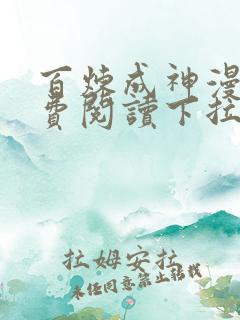 百炼成神漫
费閱讀下拉
拉姆安拉
未经同意禁止转载